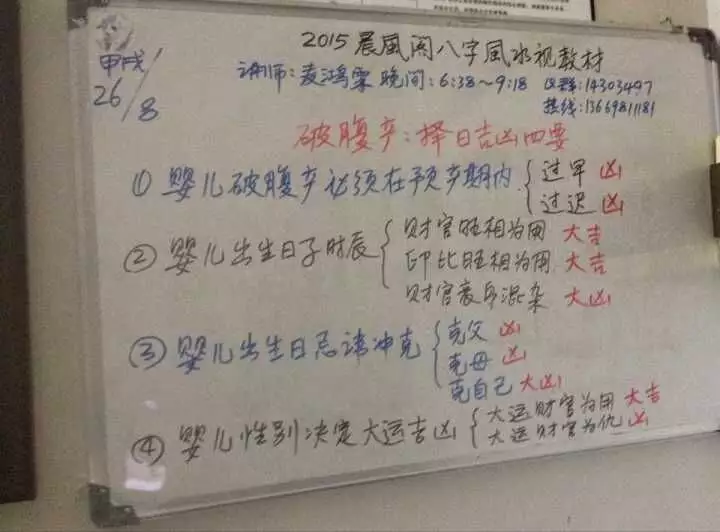 2015晨風阁八字風水视教材
甲戌
26/8
讲师:凌鴻霖 晚间:6:38~9:18 Q群:14303497
热线:13669811181
破腹产:择日吉凶四要
① 婴儿破腹产必须在予产期内
过早 凶
过迟 凶
② 婴儿出生日子时辰
财官旺相为用 大吉
印比旺相为用 大吉
财官衰弱混杂 大凶
③ 婴儿出生日忌讳冲克
克父 凶
克母 凶
克自己 大凶
④ 婴儿性别决定大运吉凶
大运财官为用 大吉
大运财官为仇 凶